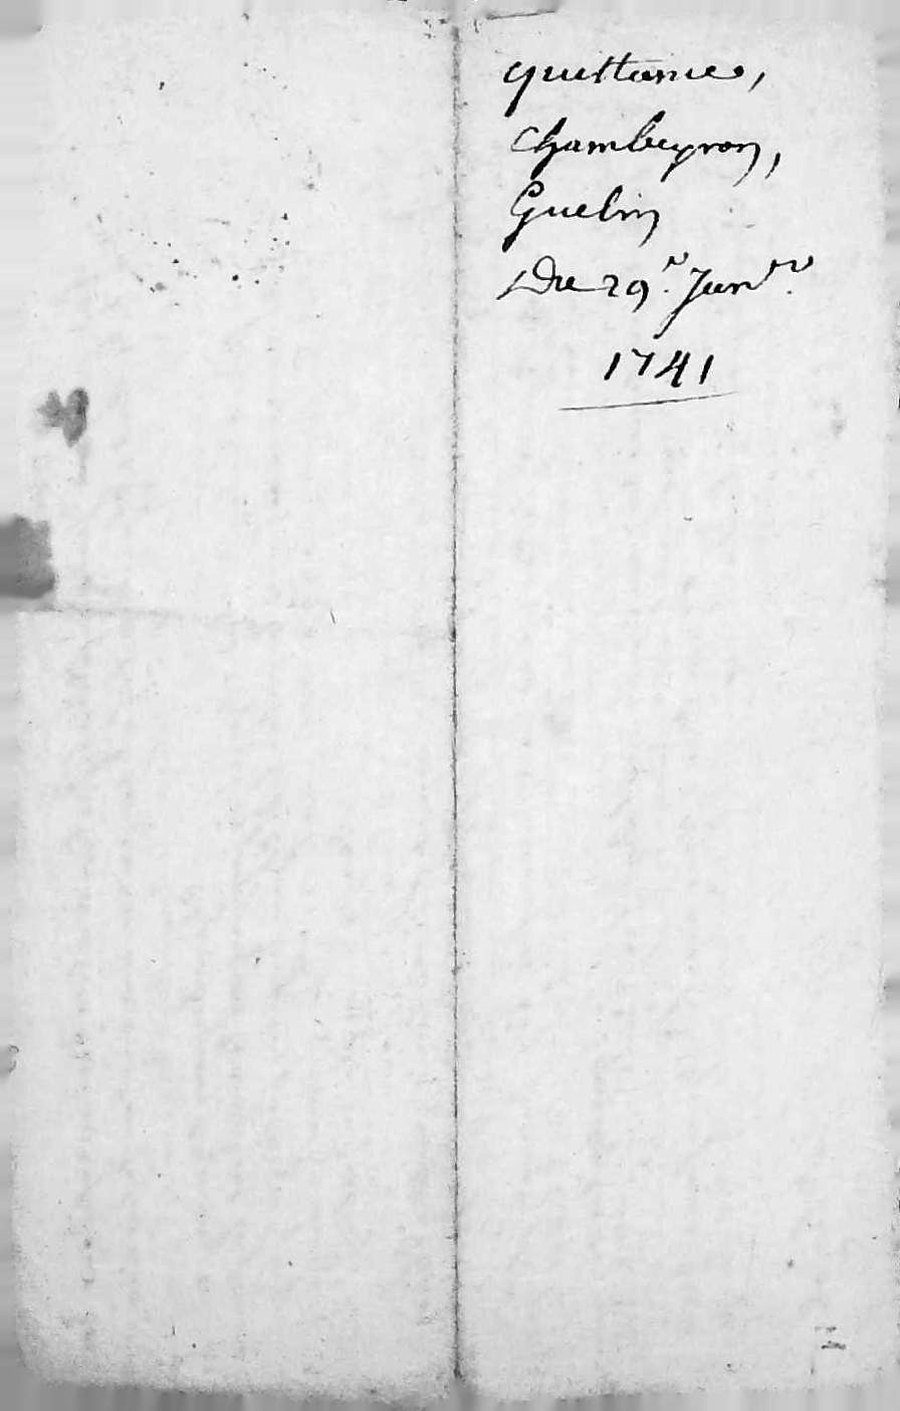 quittance,
Chambeyron,
Guebin
Du 29.e Janv.er
1741